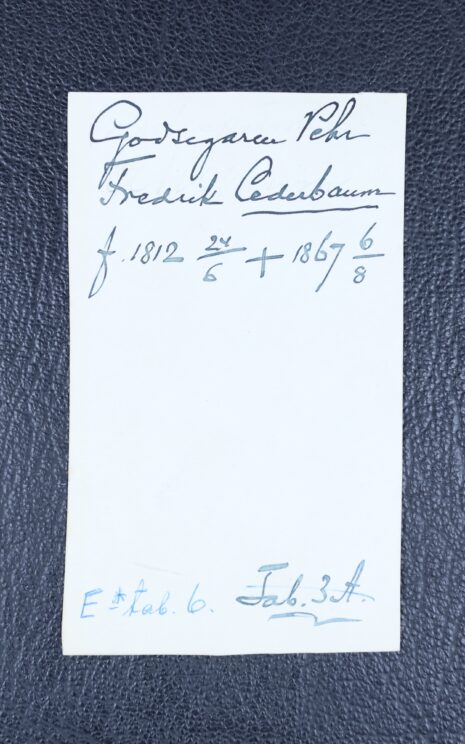 Godsegaren Pehr
Fredrik Cederbaum
f. 1812 24/6 + 1867 6/8
E* tab. 6. Tab. 3 A.